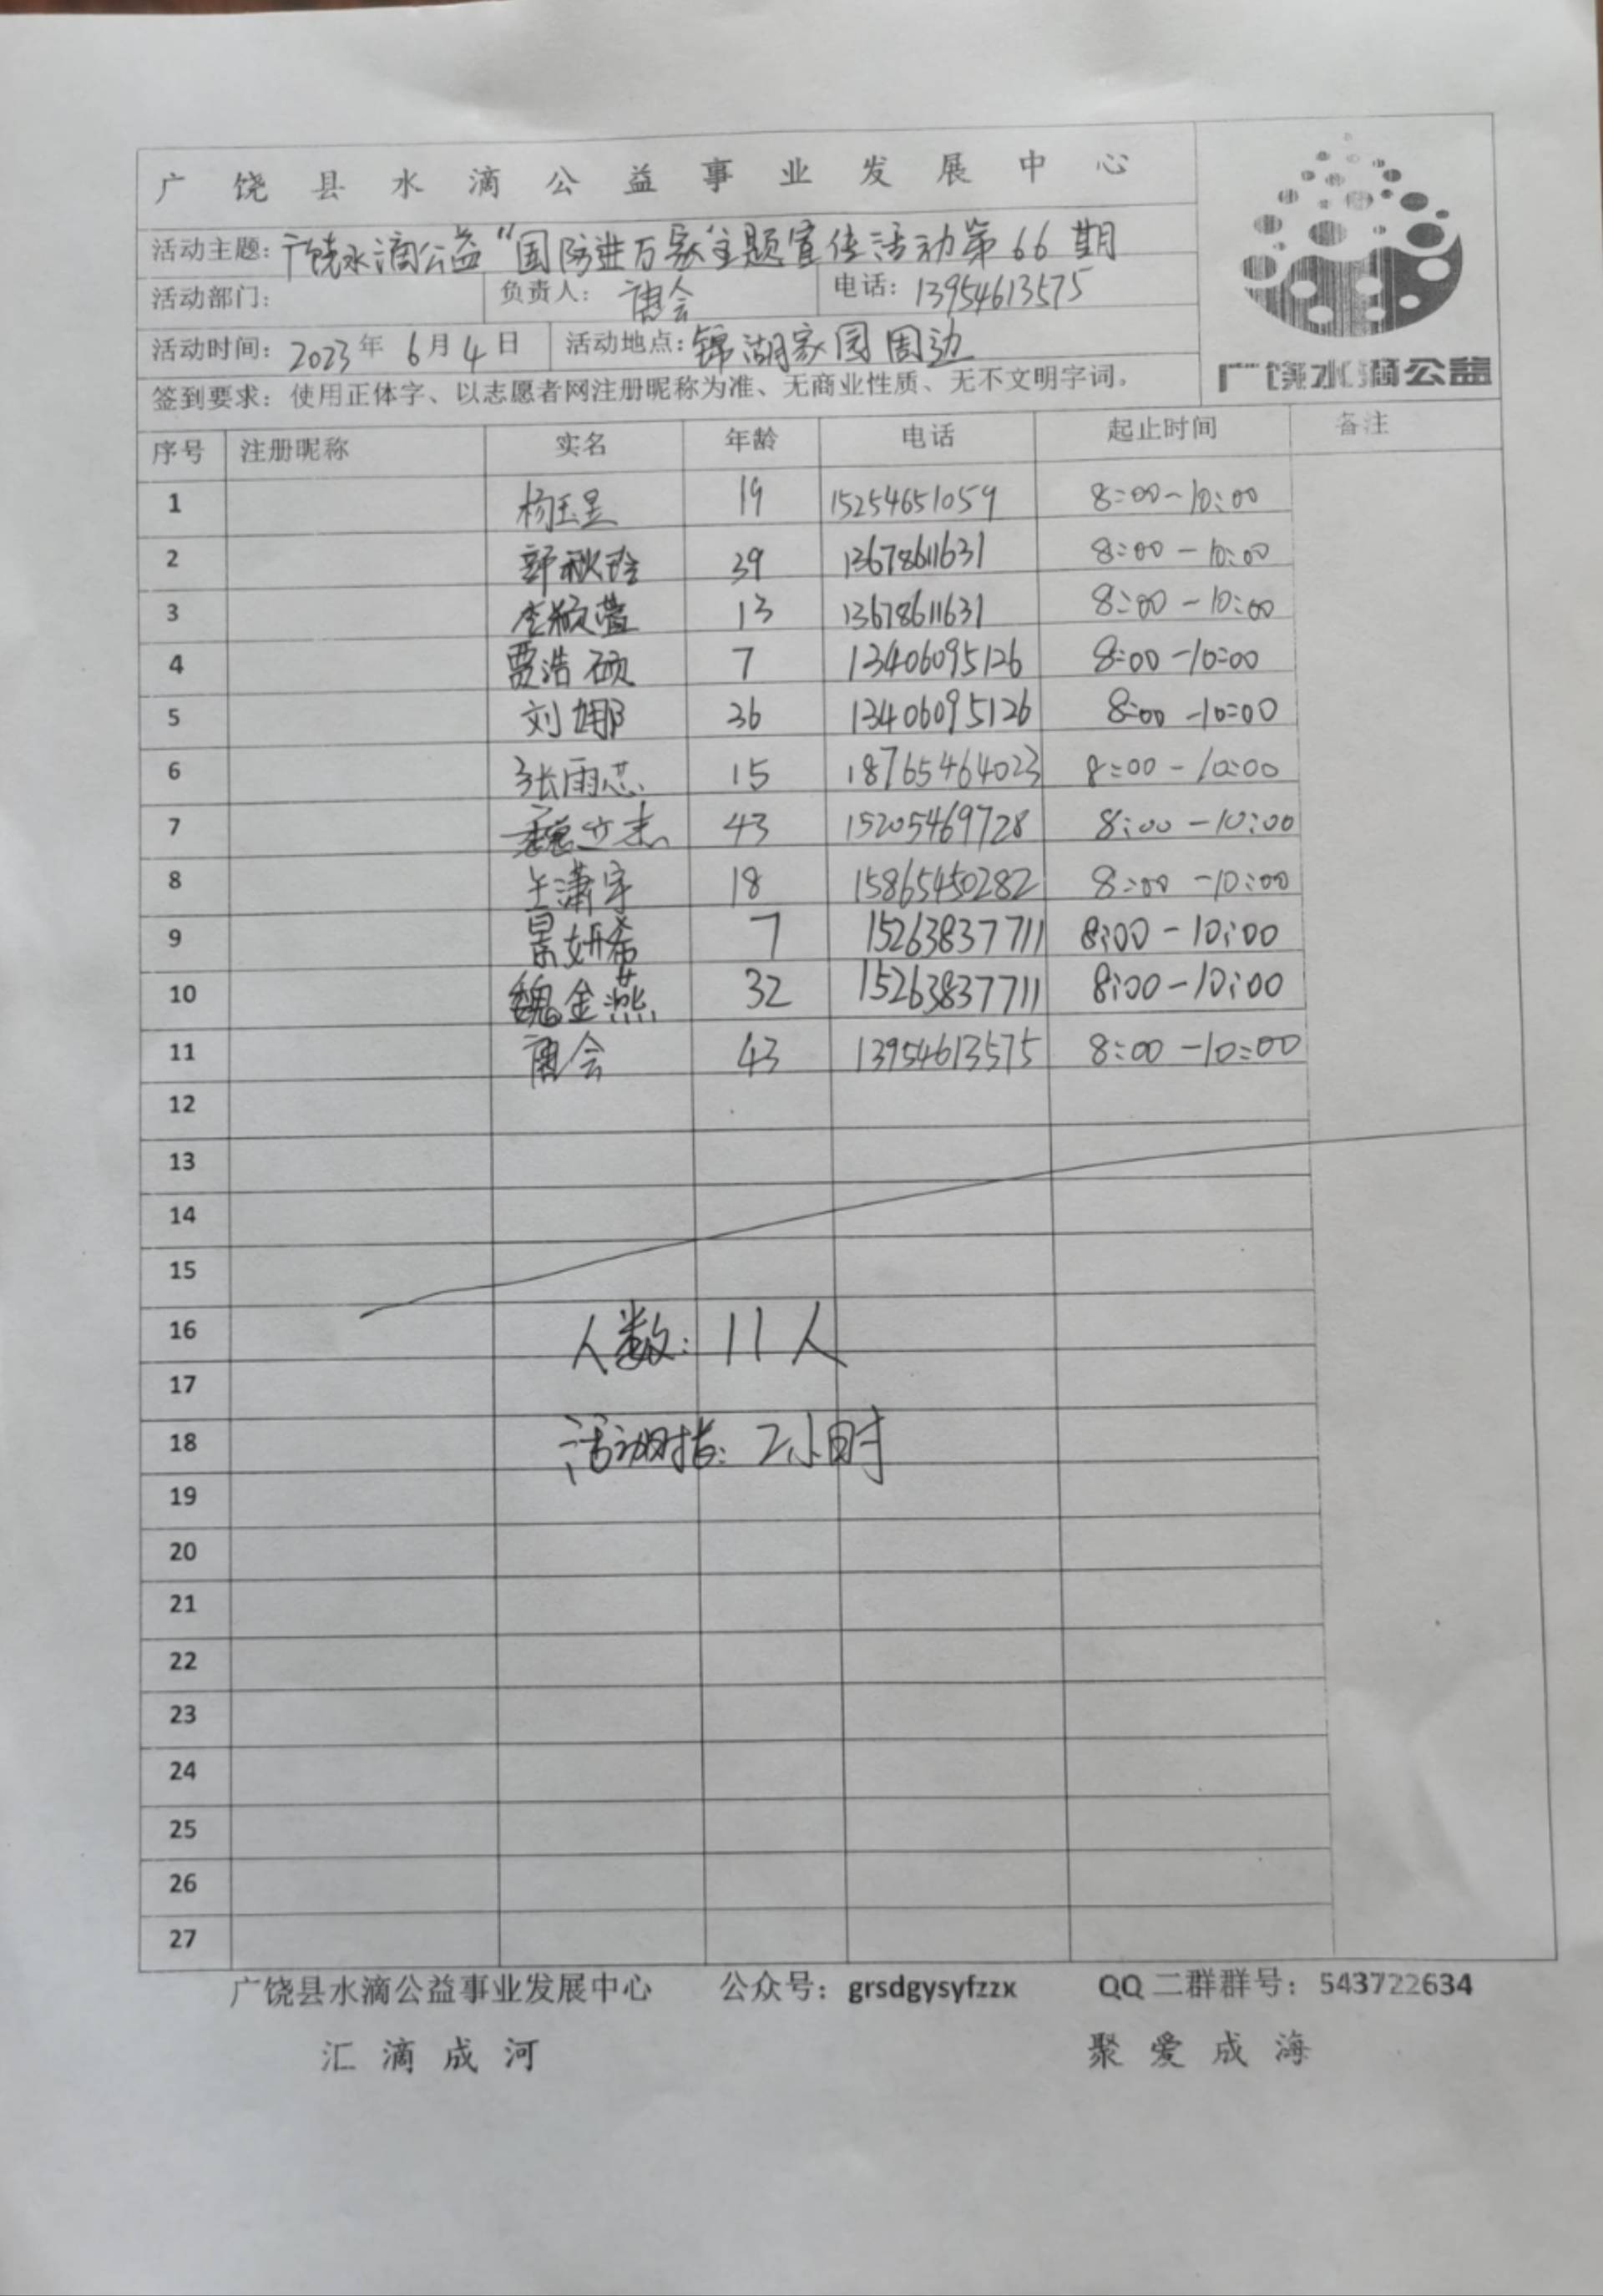 广饶县水滴公益事业发展中心
活动主题：广饶水滴公益“国防进万家”主题宣传活动第66期
活动部门： 负责人：唐会 电话：13954613575
活动时间：2023年6月4日 活动地点：锦湖家园周边
广饶水滴公益
签到要求：使用正体字、以志愿者网注册昵称为准、无商业性质、无不文明字词。
序号 注册昵称 实名 年龄 电话 起止时间 备注
1 杨玉昱 19 15254651059 8:00-10:00
2 郭秋玲 39 13678611631 8:00-10:00
3 李颖萱 13 13678611631 8:00-10:00
4 贾浩硕 7 13406095126 8:00-10:00
5 刘娜 36 13406095126 8:00-10:00
6 张雨芯 15 18765464023 8:00-10:00
7 43 15205469728 8:00-10:00
8 王潇宇 18 15865450282 8:00-10:00
9 景妍希 7 15263837711 8:00-10:00
10 魏金燕 32 15263837711 8:00-10:00
11 唐会 43 13954613575 8:00-10:00
12
13
14
15
16 人数：11人
17
18 活动时长：2小时
19
20
21
22
23
24
25
26
27
广饶县水滴公益事业发展中心 公众号：grsdgysyfzzx QQ二群群号：543722634
汇滴成河 聚爱成海